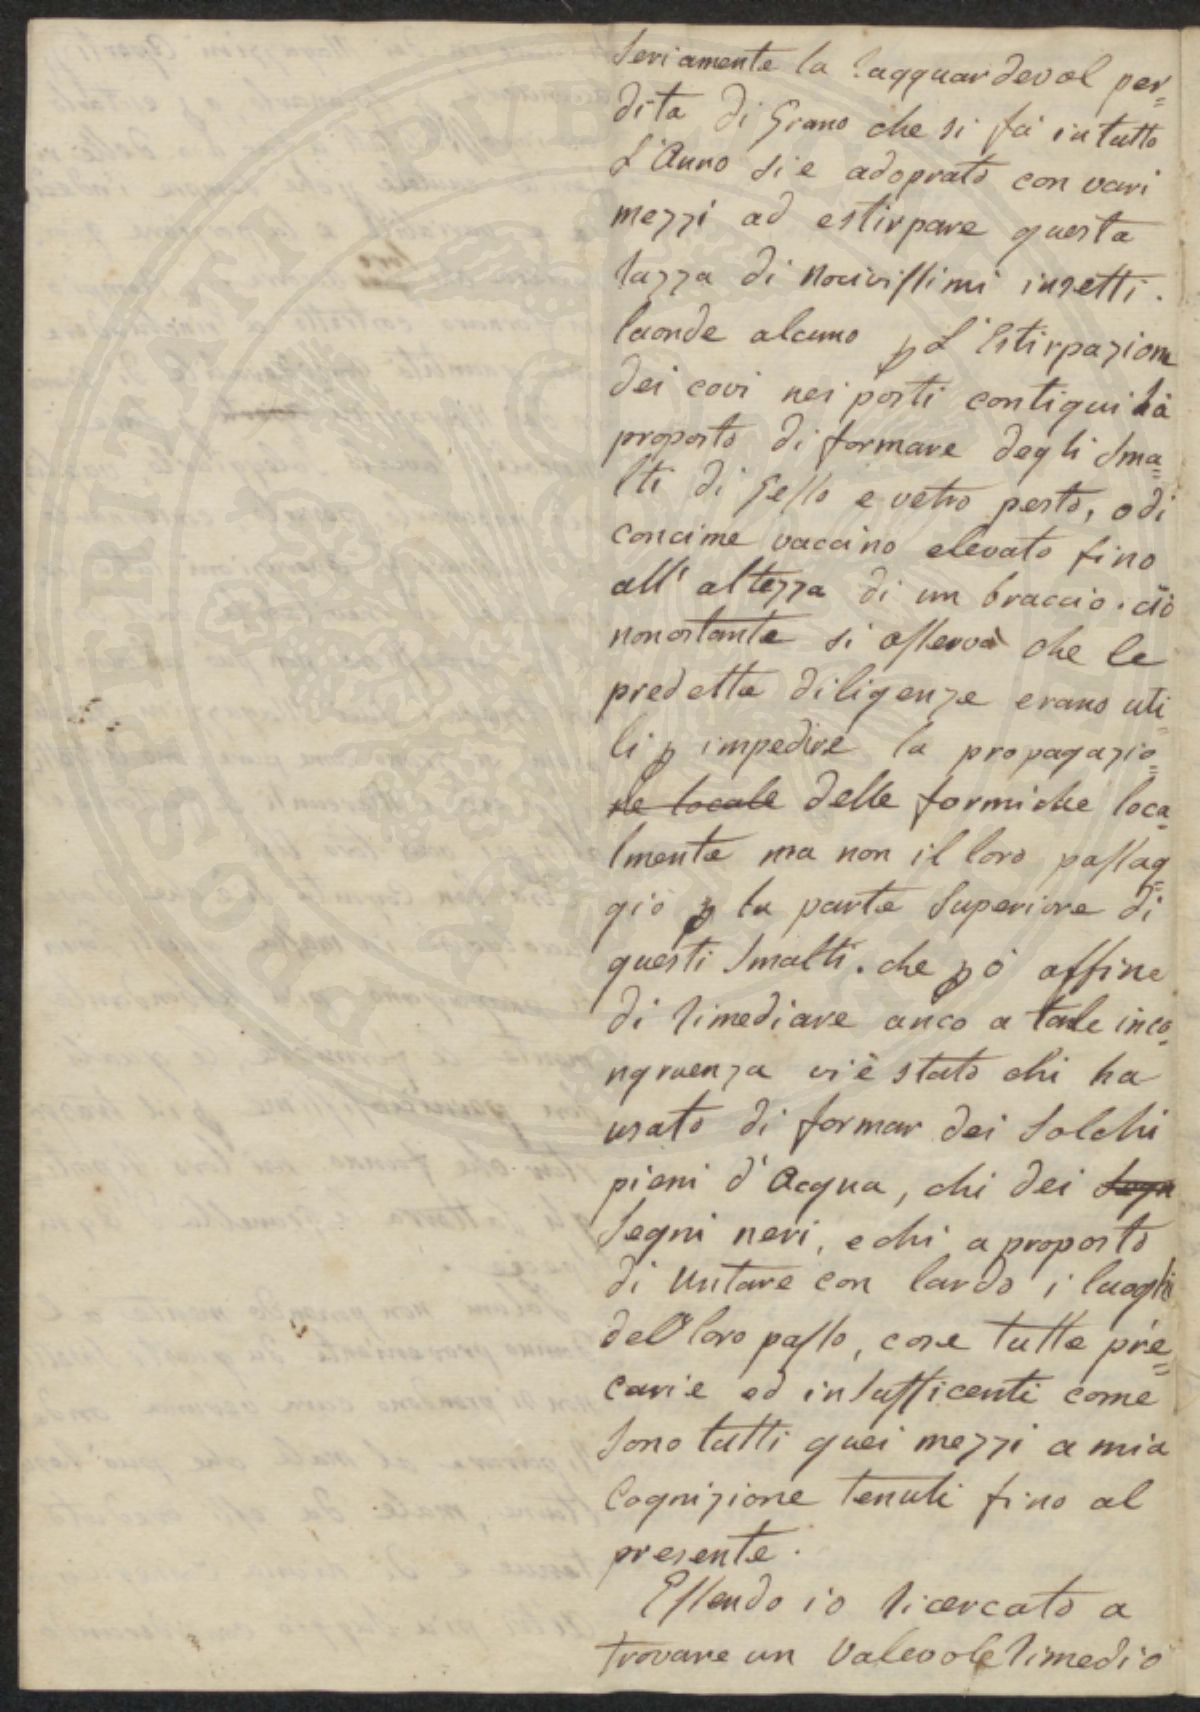 seriamente la ragguardevol per=
dita di Grano che si fà in tutto
L'Anno si è adoprato con vari
mezzi ad estirpare questa
razza di nocivissimi insetti.
laonde alcuno p L'Estirpazione
dei covi nei posti contigui hà
proposto di formare degli sma=
lti di Gesso e vetro pesto, o di
concime vaccino elevato fino
all'altezza di un braccio. ciò
nonostante si osservà che le
predette diligenze erano uti=
li p impedire la propagazio=
ne locale delle formiche loca=
lmente ma non il loro passag=
gio p la parte superiore di
questi smalti. che p ò affine
di rimediare anco a tale inco=
ngruenza vi è stato chi ha
usato di formar dei solchi
pieni d'Acqua, chi dei segn
segni neri, e chi a proposto
di untare con lardo i luoghi
del loro passo, cose tutte pre=
carie ed insufficenti come
sono tutti quei mezzi a mia
Cognizione tenuti fino al
presente.
Essendo io ricercato a
trovare un valevole rimedio